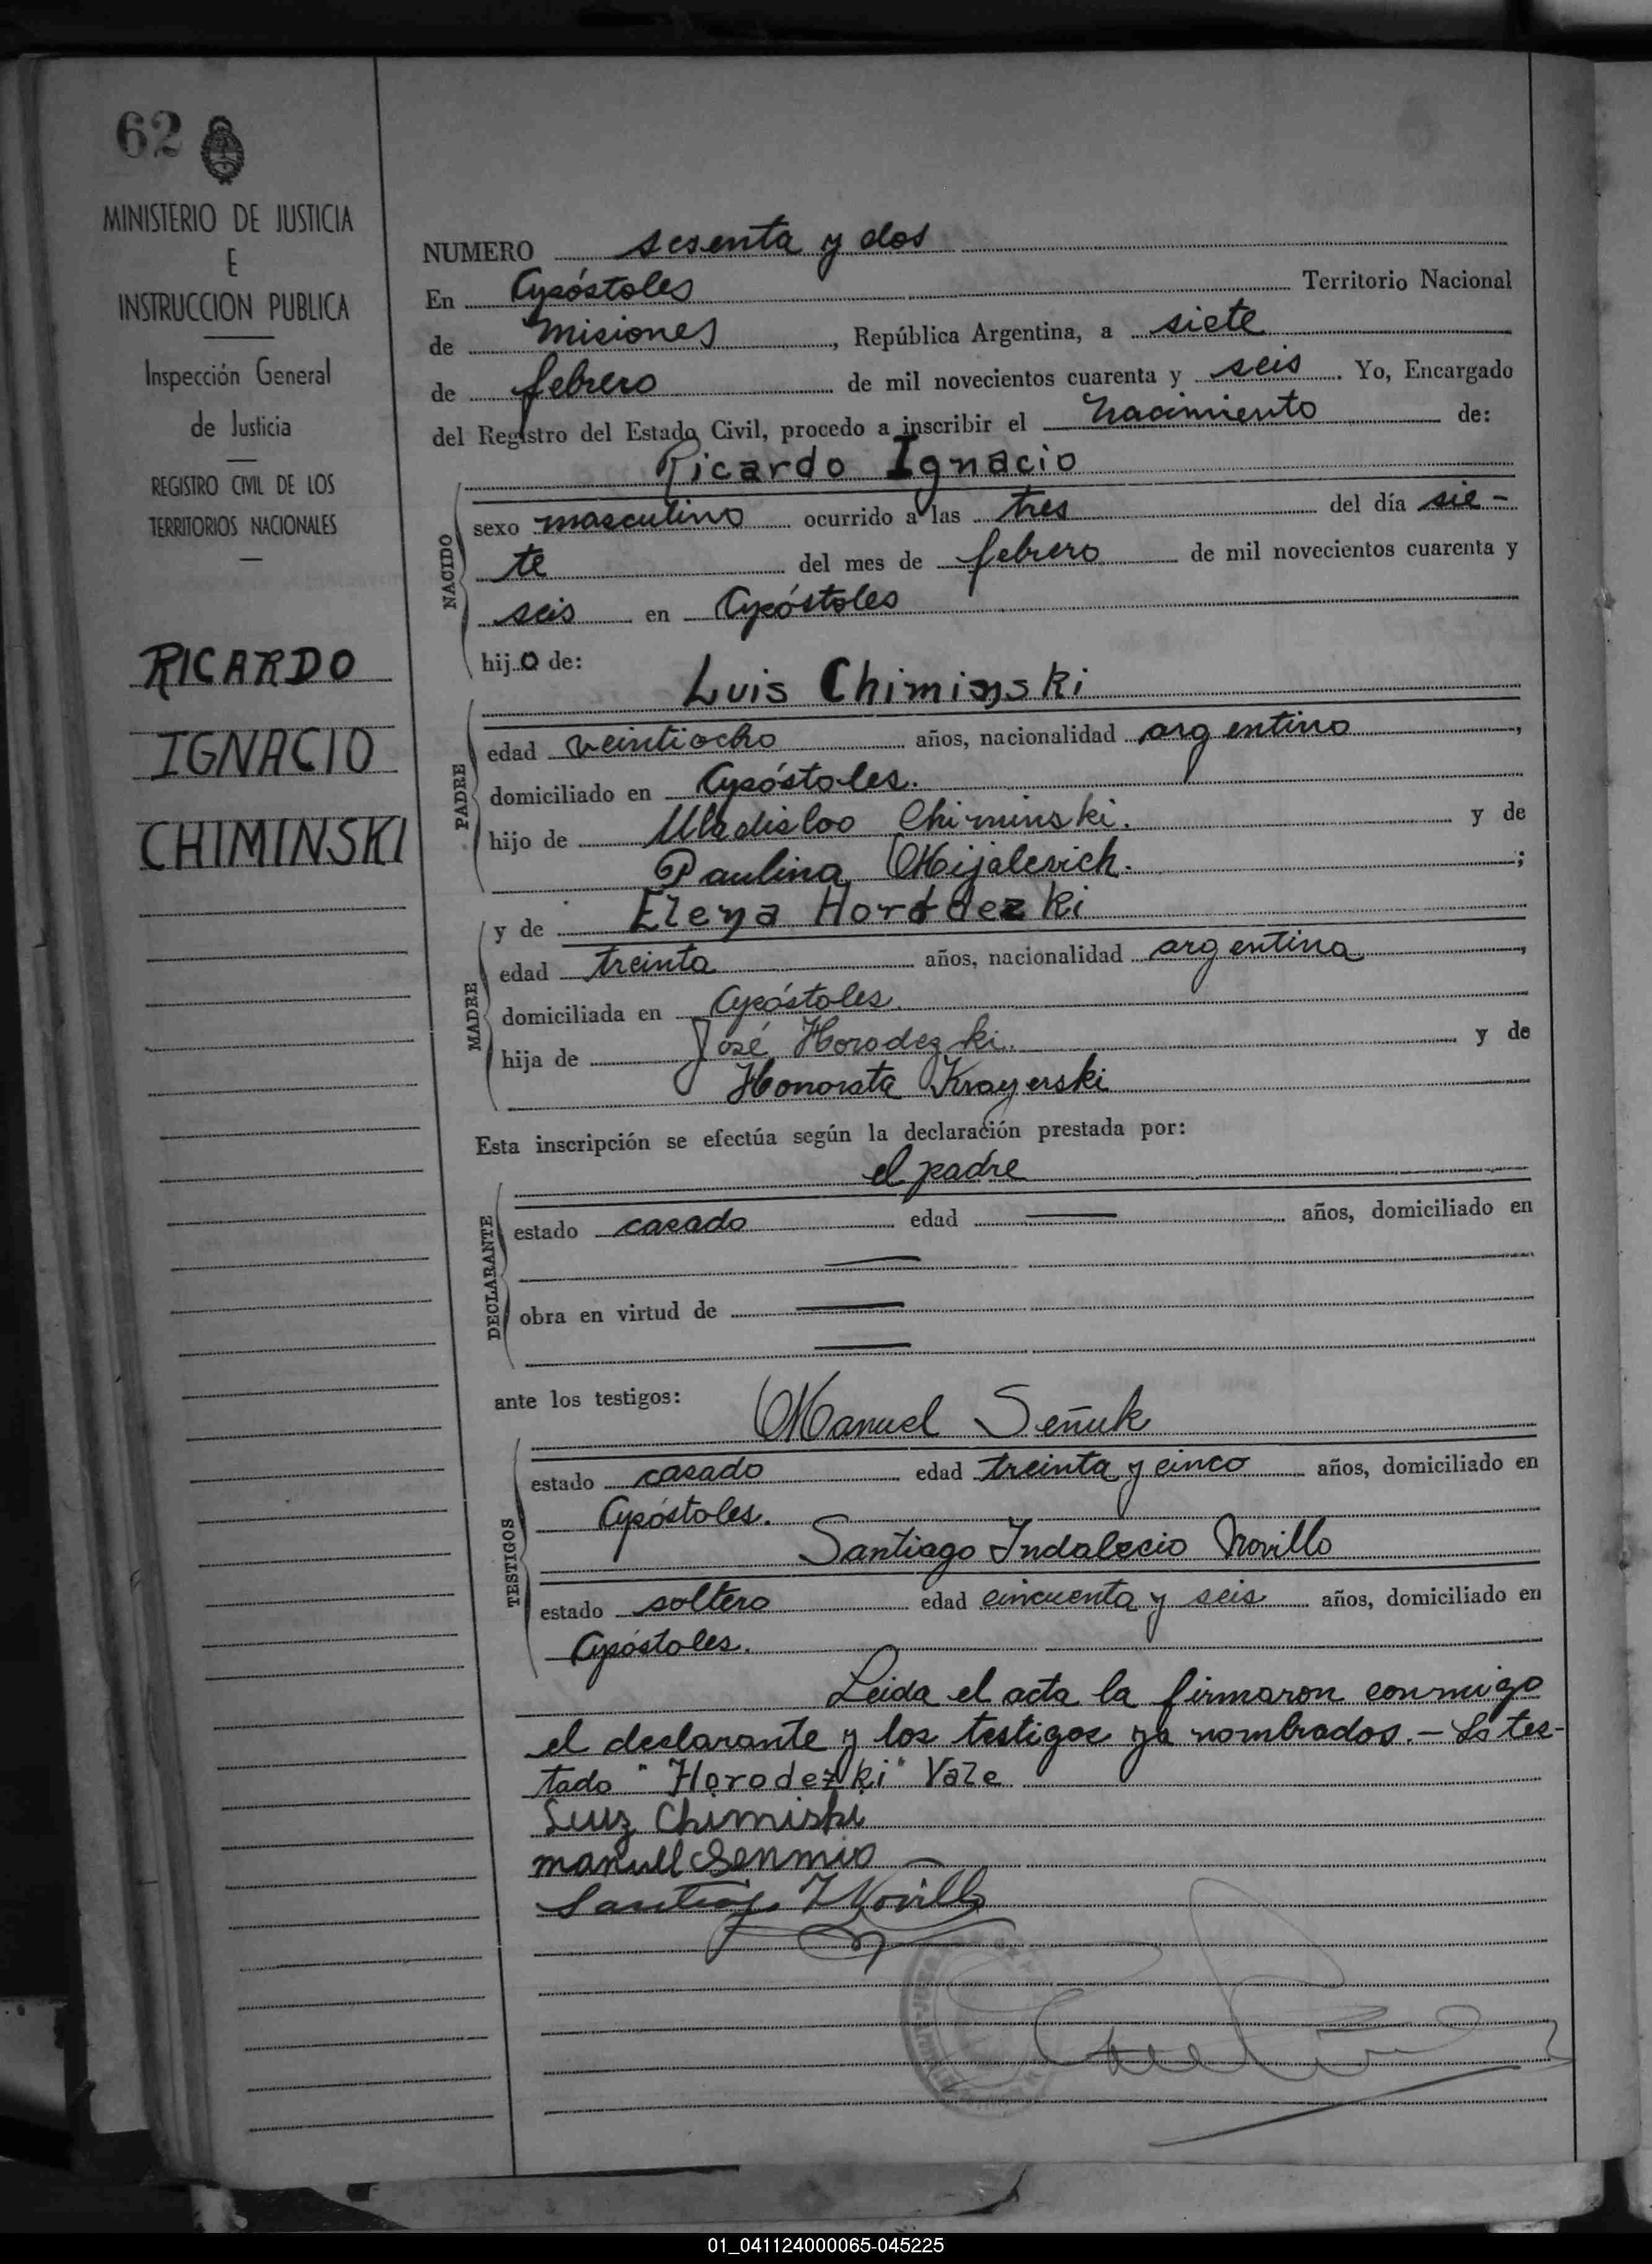 62
MINISTERIO DE JUSTICIA
E
INSTRUCCION PUBLICA
Inspección General
de Justicia
REGISTRO CIVIL DE LOS
TERRITORIOS NACIONALES
RICARDO
IGNACIO
CHIMINSKI
NUMERO sesenta y dos
En Apóstoles Territorio Nacional
de Misiones, República Argentina, a siete
de febrero de mil novecientos cuarenta y seis. Yo, Encargado
del Registro del Estado Civil, procedo a inscribir el nacimiento de:
Ricardo Ignacio
NACIDO
sexo masculino ocurrido a las tres del día sie-
te del mes de febrero de mil novecientos cuarenta y
seis en Apóstoles
hijo de:
Luis Chiminski
PADRE
edad veintiocho años, nacionalidad argentino,
domiciliado en Apóstoles.
hijo de Uladisloo Chiminski. y de
Paulina Mijalevich.;
MADRE
y de Elena Horodezki
edad treinta años, nacionalidad argentina,
domiciliada en Apóstoles.
hija de José Horodezki. y de
Honorata Krayerski
Esta inscripción se efectúa según la declaración prestada por:
el padre
DECLARANTE
estado casado edad — años, domiciliado en
—
obra en virtud de —
—
ante los testigos:
Manuel Señuk
TESTIGOS
estado casado edad treinta y cinco años, domiciliado en
Apóstoles.
Santiago Indalecio Novillo
estado soltero edad cincuenta y seis años, domiciliado en
Apóstoles.
Leida el acta la firmaron conmigo
el declarante y los testigos ya nombrados. — Lo tes-
tado "Horodezki" Vale
Luiz Chimiski
manuel Senmio
Santiago I Novillo
01_041124000065-045225